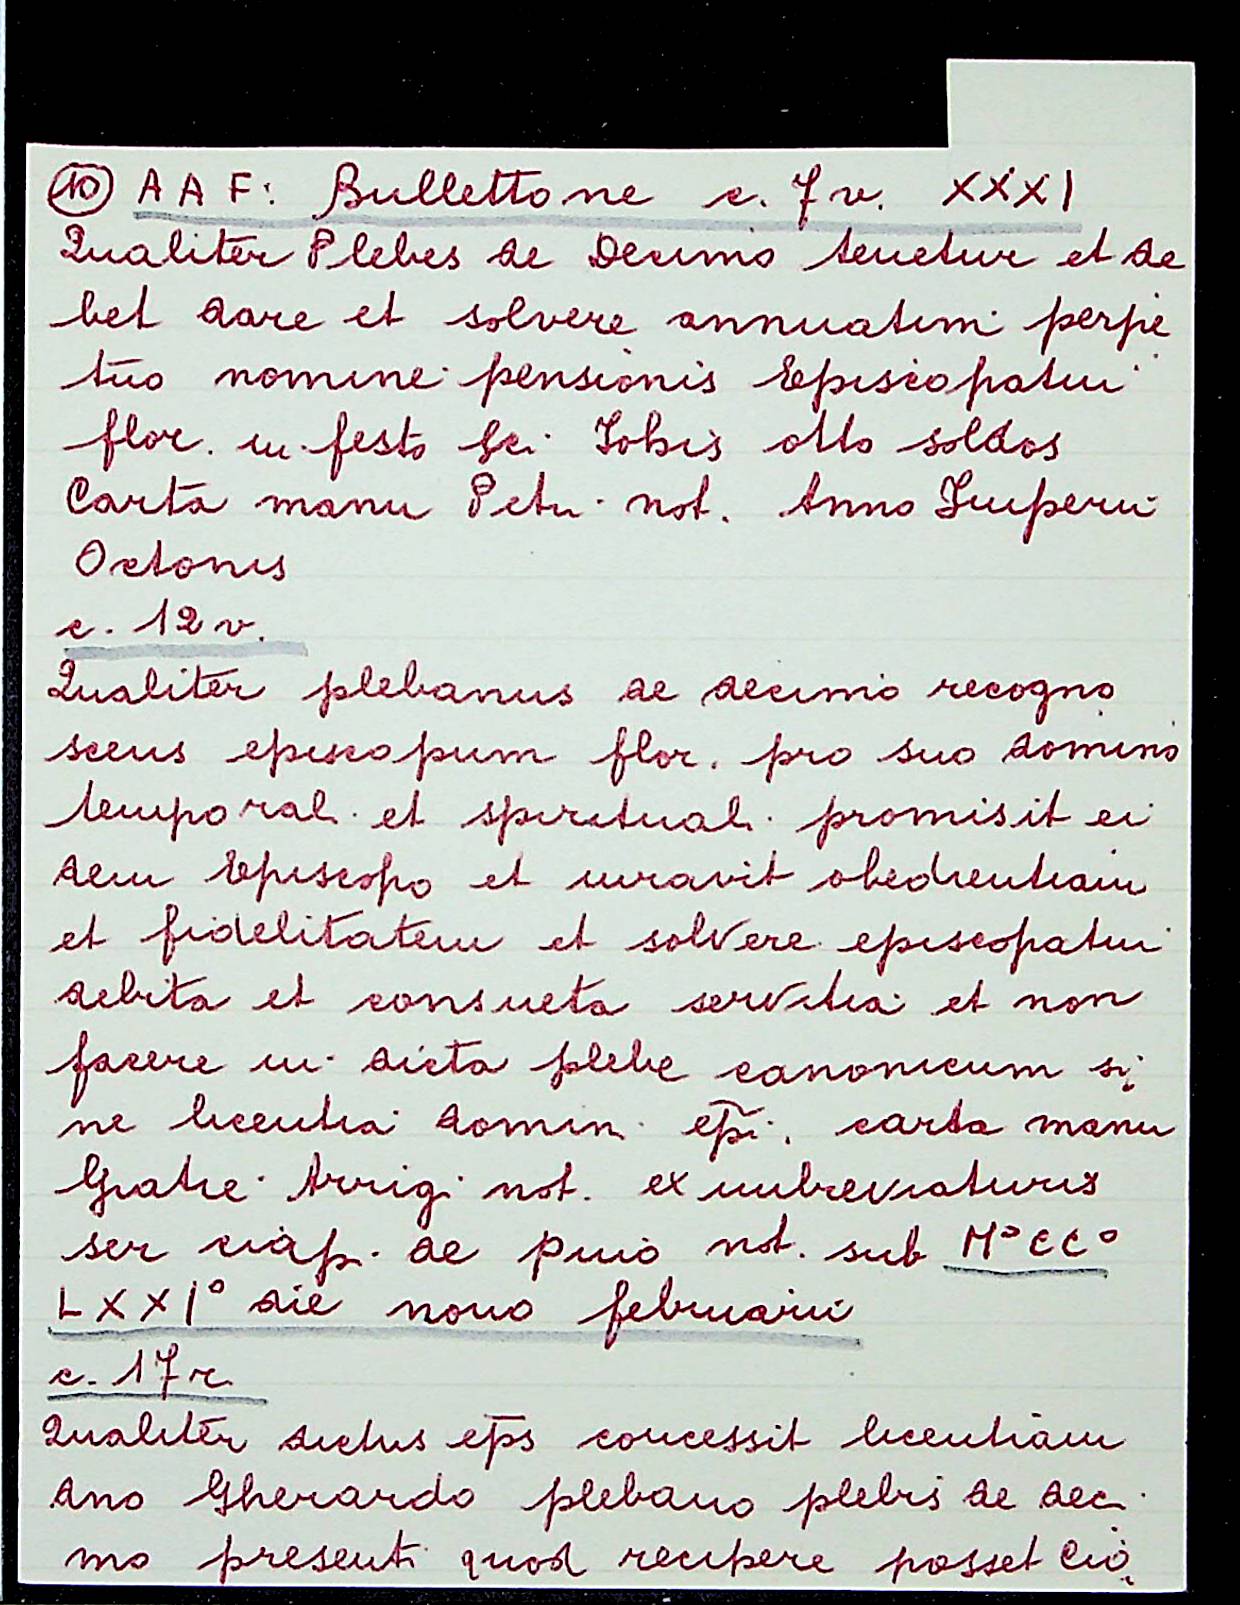 10 AAF: Bullettone c. 7 v. XXXI
Qualiter Plebes de Decimo tenetur et de
bet dare et solvere annuatim perpe
tuo nomine pensionis Episcopatui
flor. in festo Sci Iohis otto soldos
Carta manu Petri not. Anno Imperii
Octonis
c. 12 v.
Qualiter plebanus de decimo recogno
scens episcopum flor. pro suo domino
temporal. et spiritual. promisit ei
dem Episcopo et iuravit obedientiam
et fidelitatem et solvere episcopatui
debita et consueta servitia et non
facere in dicta plebe canonicum si
ne licentia domin. epi. carta manu
Gratie Arrigi not. ex imbreviaturis
ser ciap. de puio not. sub M°CC°
LXXI° die nono februarii
c. 17 r.
Qualiter dictus eps concessit licentiam
dno Gherardo plebano plebis de dec
mo presenti quod recipere posset